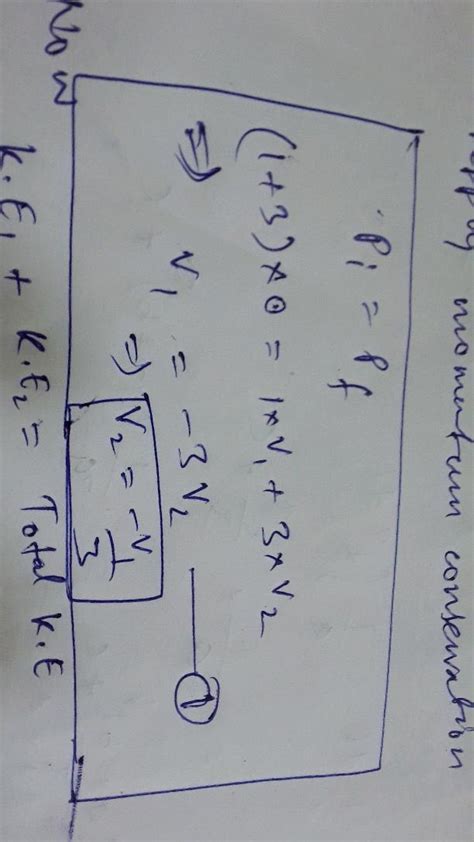 momentum conservation
Pi = Pf
(1+3)×0 = 1×V₁ + 3×V₂
⇒ V₁ = -3V₂ —①
⇒ V₂ = -V₁/3
Now
K.E₁ + K.E₂ = Total K.E